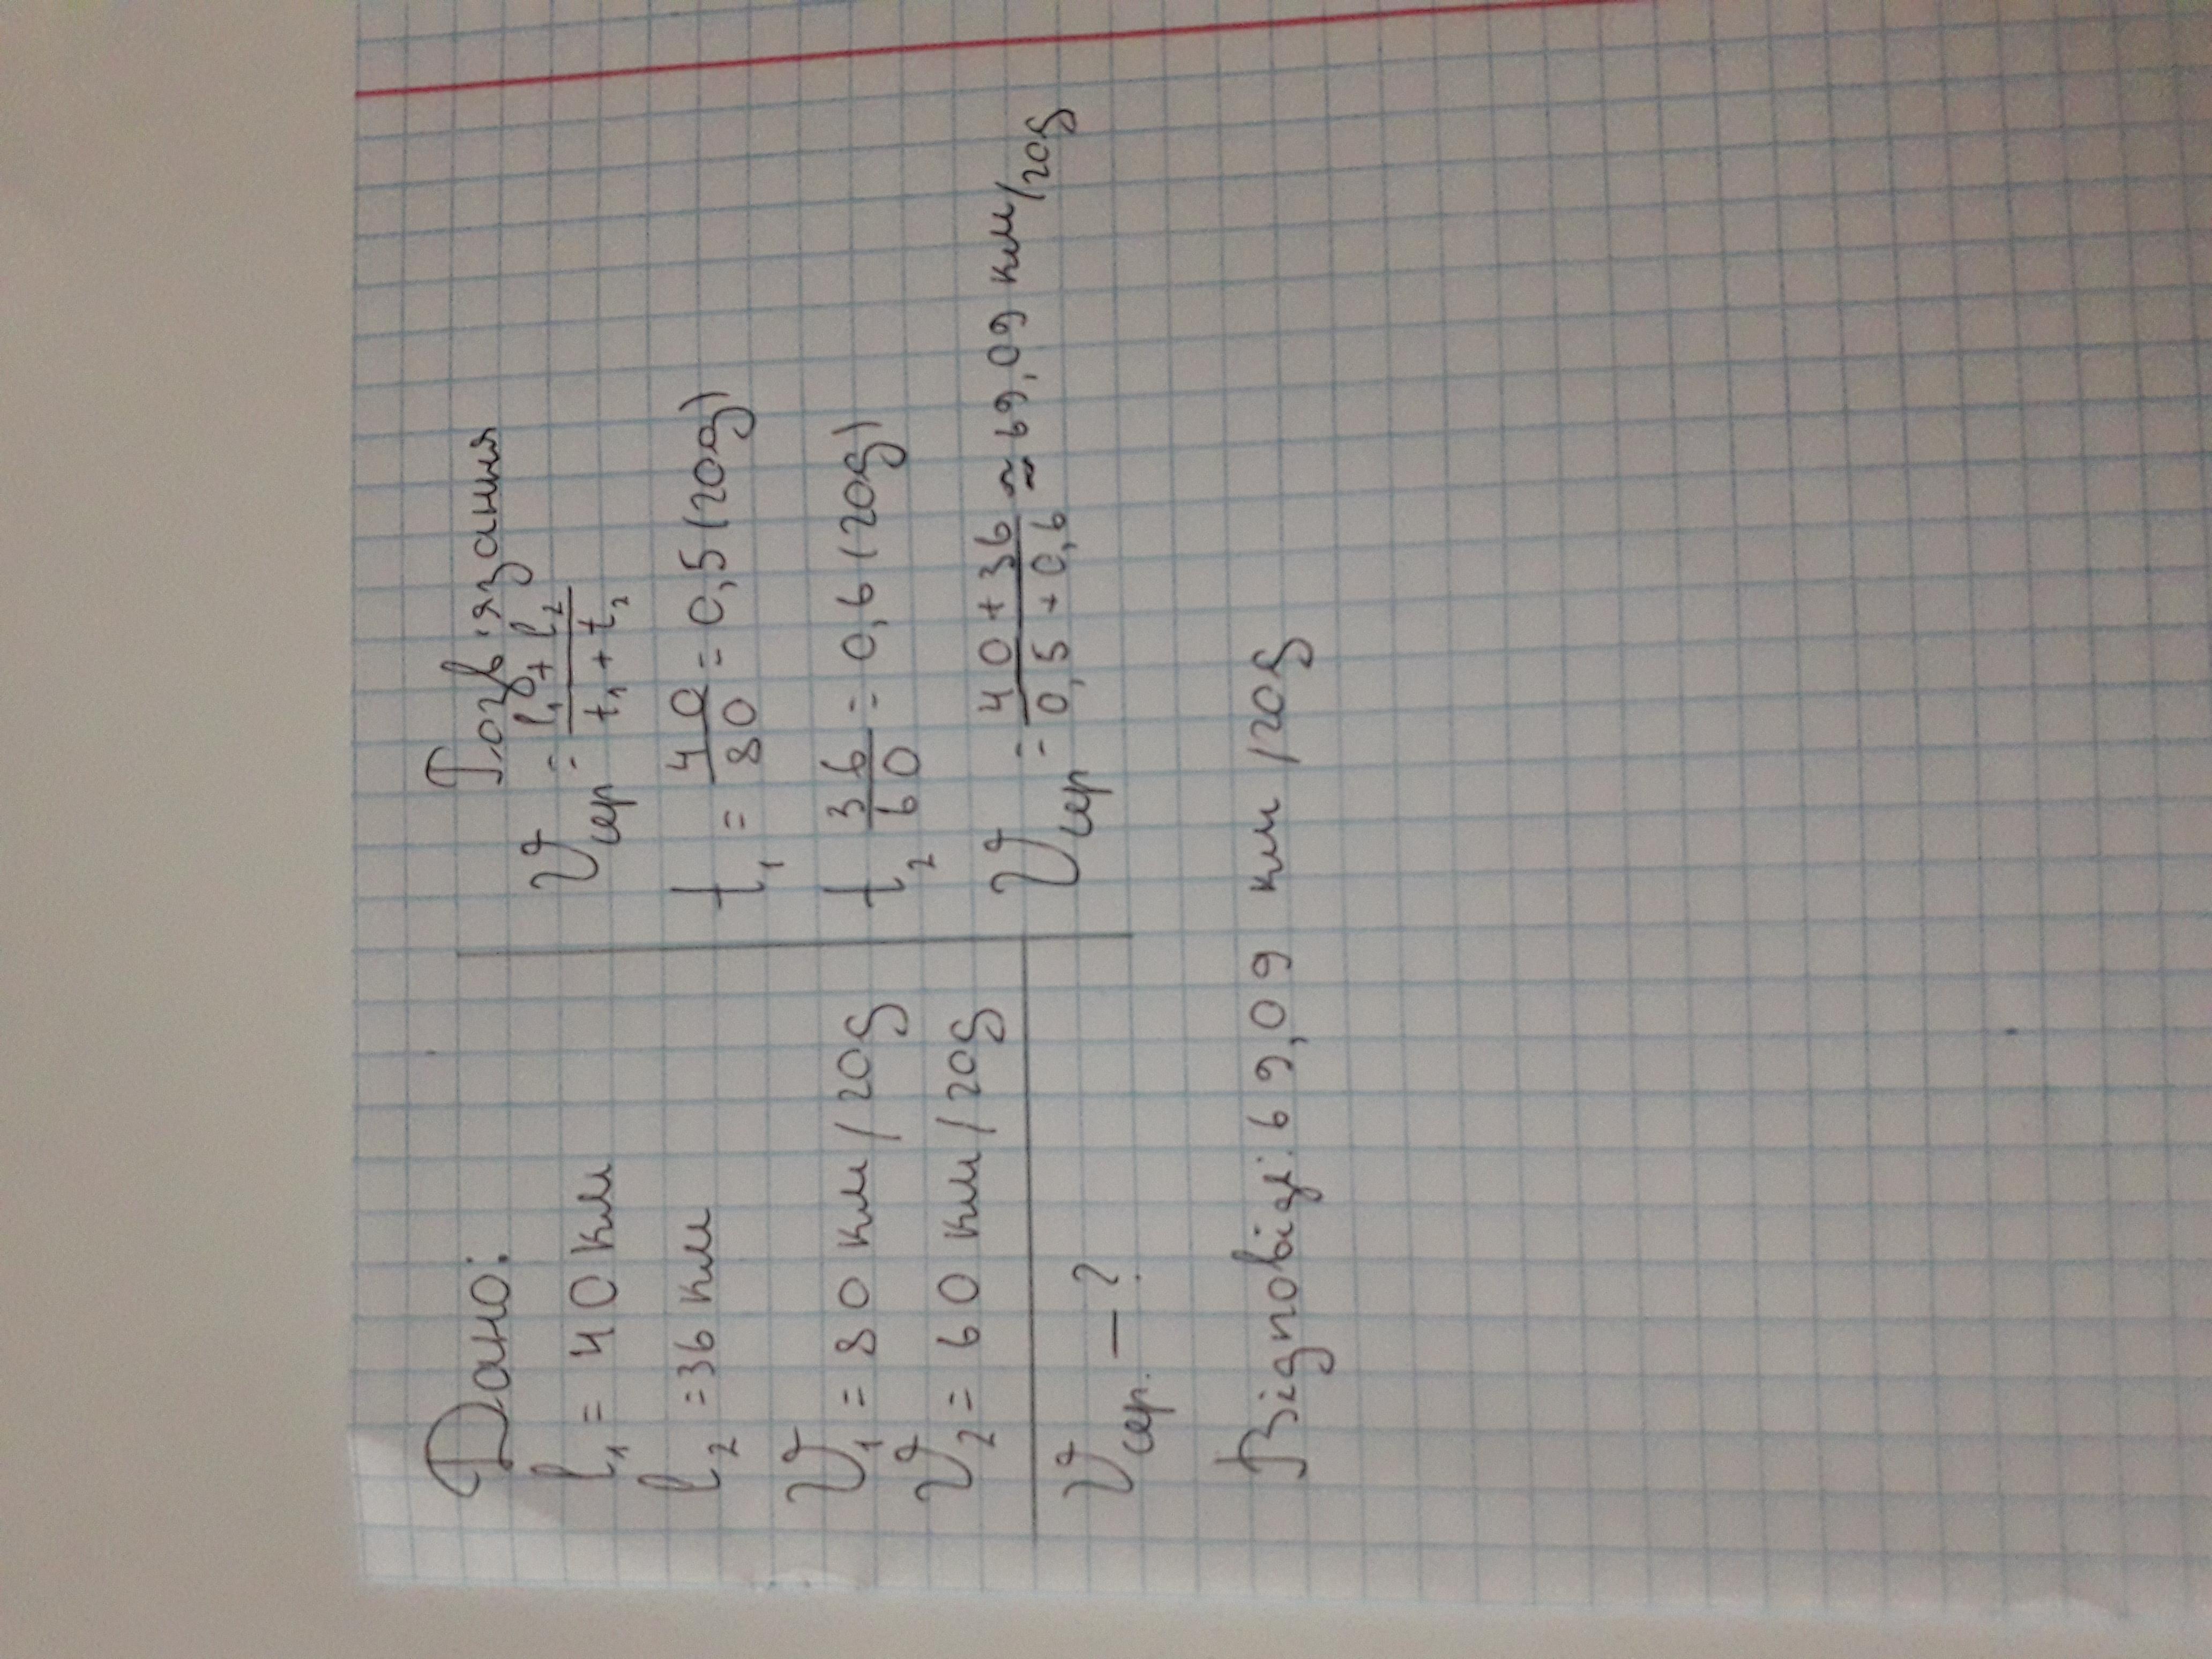 Дано:
l₁ = 40 км
l₂ = 36 км
υ₁ = 80 км/год
υ₂ = 60 км/год
υсер. — ?
Розв'язання
υсер = (l₁ + l₂)/(t₁ + t₂)
t₁ = 40/80 = 0,5 (год)
t₂ 36/60 = 0,6 (год)
υсер = (40 + 36)/(0,5 + 0,6) ≈ 69,09 км/год
Відповідь: 69,09 км/год